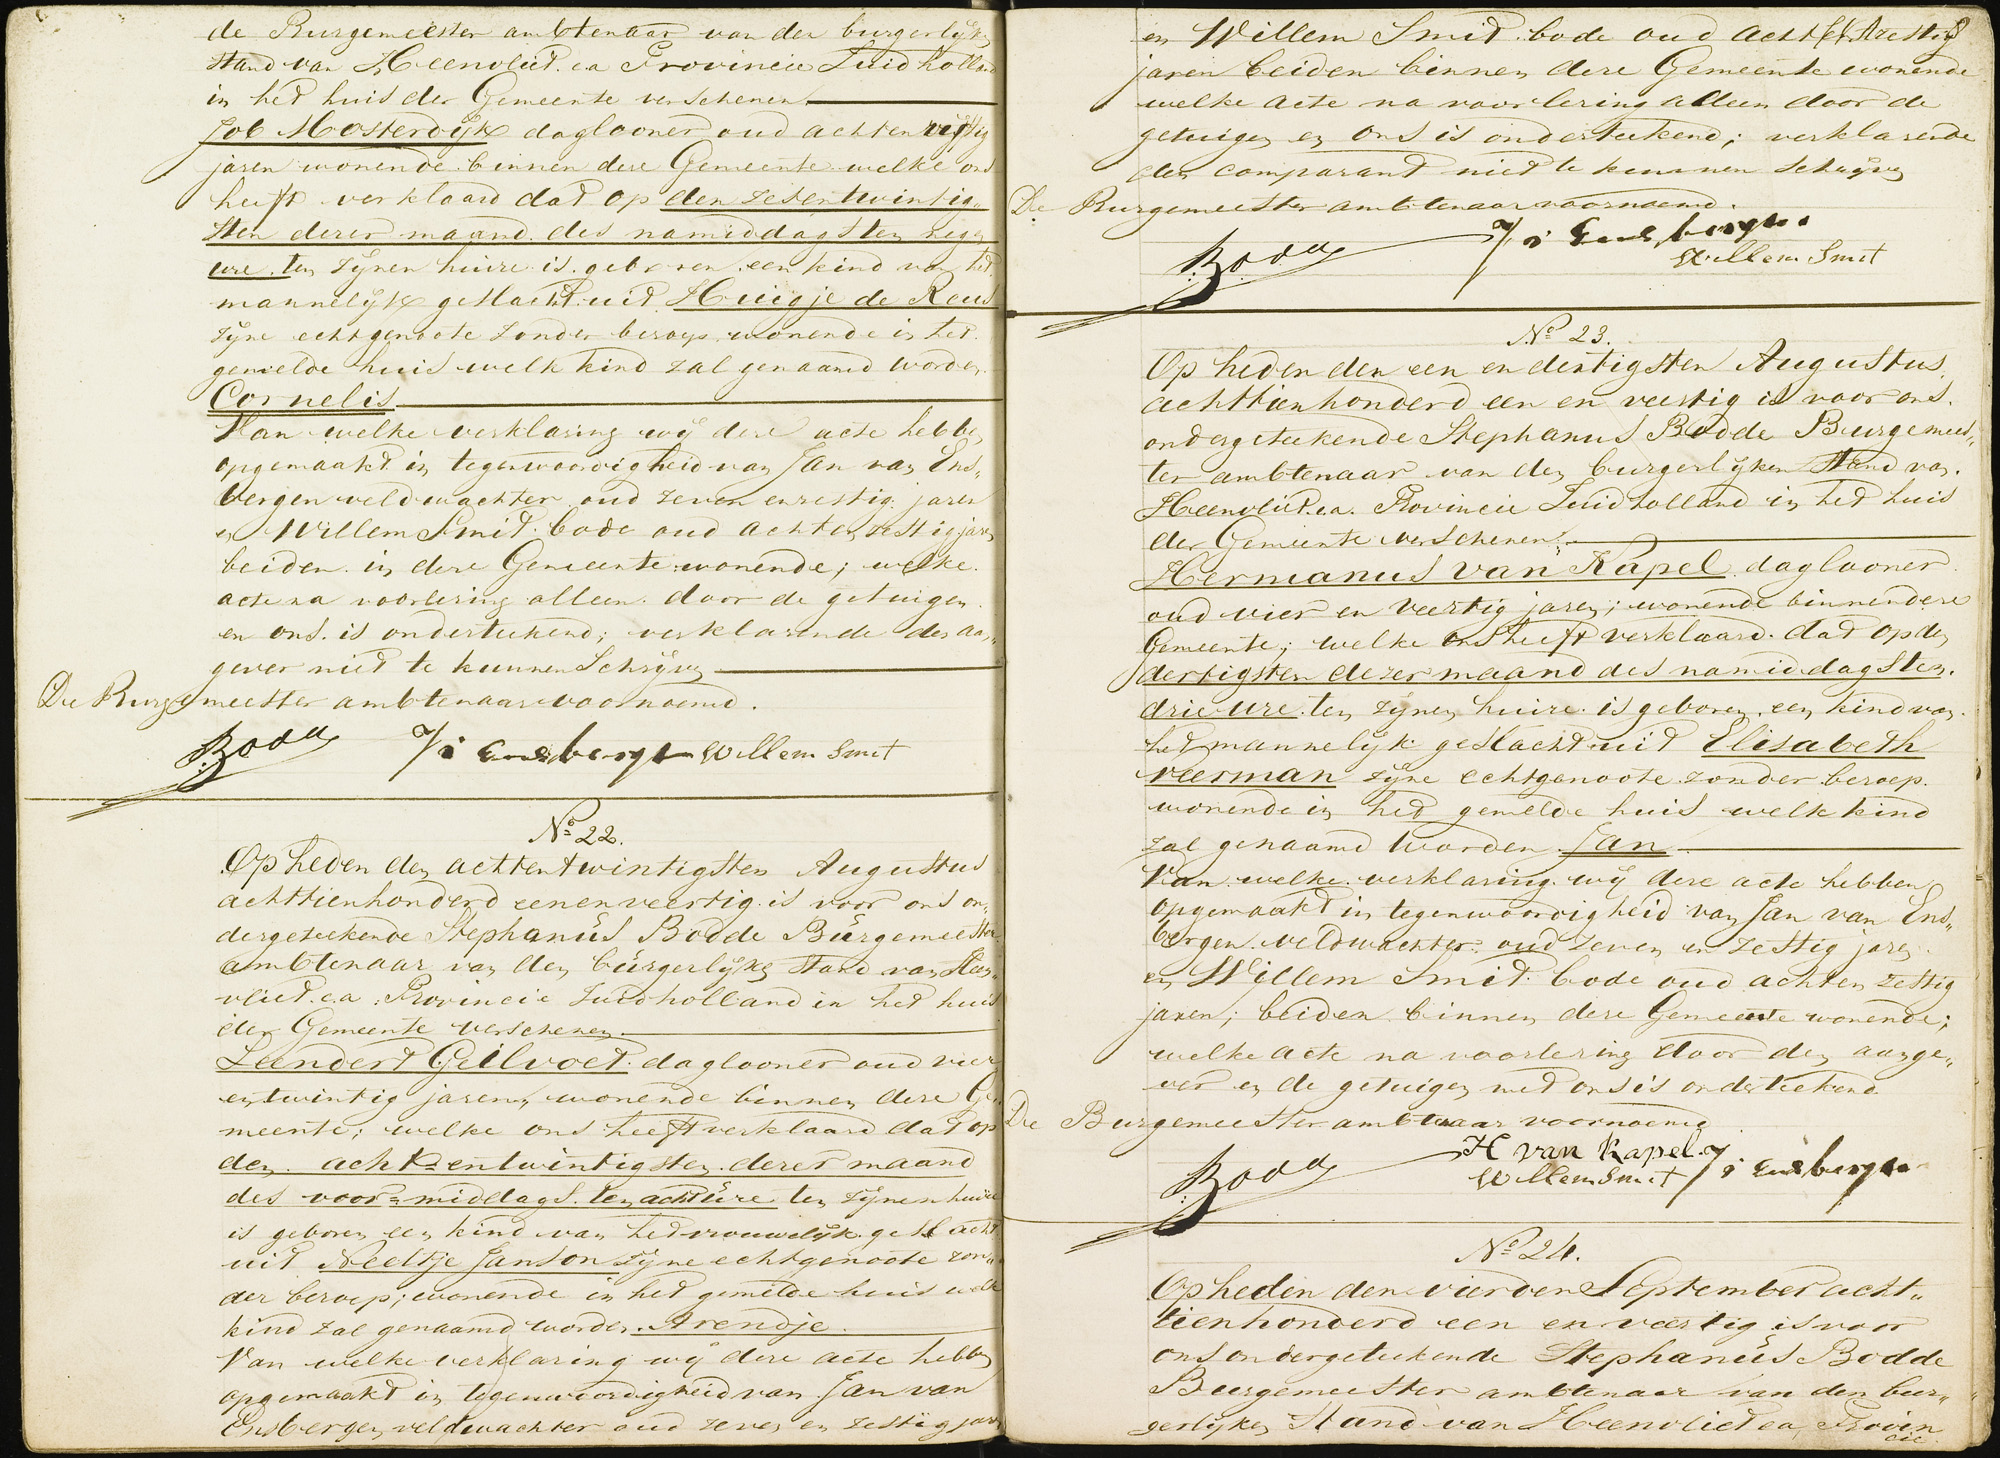 de Burgemeester ambtenaar van den burgerlijken
stand van Heenvliet ca Provincie Zuid holland
in het huis der Gemeente verschenen
Job Mosterdijk daglooner oud achtenvijftig
jaren wonende binnen deze Gemeente welke ons
heeft verklaard dat op den zesentwintig„
sten dezer maand des namiddags ten negen
ure ten zijnen huize is geboren een kind van het
mannelijk geslacht uit Huigje de Reus
zijne echtgenoote zonder beroep wonende in het
gemelde huis welk kind zal genaamd worden
Cornelis
Van welke verklaring wij deze acte hebben
opgemaakt in tegenwoordigheid van Jan van Ens„
bergen veldwachter oud zeven enzestig jaren
en Willem Smit bode oud achtenzestig jaren
beiden in deze Gemeente wonende; welke
acte na voorlezing alleen door de getuigen
en ons is onderteekend; verklarende den aan„
gever niet te kunnen Schrijven
De Burgemeester ambtenaar voornoemd.
Bodde J v Ensbergen Willem Smit
No 22.
Op heden den achtentwintigsten Augustus
achttienhonderd eenenveertig is voor ons on„
dergeteekende Stephanus Bodde Burgemeester
ambtenaar van den burgerlijken Stand van Heen„
vliet ca Provincie Zuidholland in het huis
der Gemeente verschenen
Leendert Geilvoet daglooner oud vier
entwintig jaren, wonende binnen deze Ge„
meente; welke ons heeft verklaard dat op
den achtentwintigsten dezer maand
des voor=middags ten acht üre ten zijnen huize
is geboren een kind van het vrouwelijk geslacht
uit Neeltje Janson zijne echtgenoote zon„
der beroep; wonende in het gemelde huis welk
kind zal genaamd worden Arendje
Van welke verklaring wij deze acte hebben
opgemaakt in tegenwoordigheid van Jan van
Ensbergen veldwachter oud zeven en zestig jaren
en Willem Smit bode oud acht en zestig
jaren beiden binnen deze Gemeente wonende
welke acte na voorlezing alleen door de
getuigen en ons is onderteekend; verklarende
den comparant niet te kunnen schrijven
De Burgemeester ambtenaar voornoemd.
Bodde J v Ensbergen
Willem Smit
No 23.
Op heden den een en dertigsten Augustus
achttienhonderd een en veertig is voor ons
ondergeteekende Stephanus Bodde Burgemees„
ter ambtenaar van den burgerlijken Stand van
Heenvliet ca. Provincie Zuidholland in het huis
der Gemeente verschenen
Hermanus van Kapel daglooner
oud vier en veertig jaren; wonende binnen deze
Gemeente; welke ons heeft verklaard dat op den
dertigsten dezer maand des namiddags ten
drie ure ten zijnen huize is geboren een kind van
het mannelijk geslacht uit Elisabeth
Veerman zijne echtgenoote zonder beroep
wonende in het gemelde huis welk kind
zal genaamd worden Jan
Van welke verklaring wij deze acte hebben
opgemaakt in tegenwoordigheid van Jan van Ens„
bergen veldwachter oud zeven en zestig jaren
en Willem Smit bode oud achten zestig
jaren; beiden binnen deze Gemeente wonende;
welke acte na voorlezing door den aange„
ver en de getuigen met ons is onderteekend
De Burgemeester ambtenaar voornoemd
Bodde H van Kapel J v Ensbergen
Willem Smit
No 24.
Op heden den vierden September acht„
tienhonderd een en veertig is voor
ons ondergeteekende Stephanüs Bodde
Burgemeester ambtenaar van den bur„
gerlijken Stand van Heenvliet ca, Provin
cie